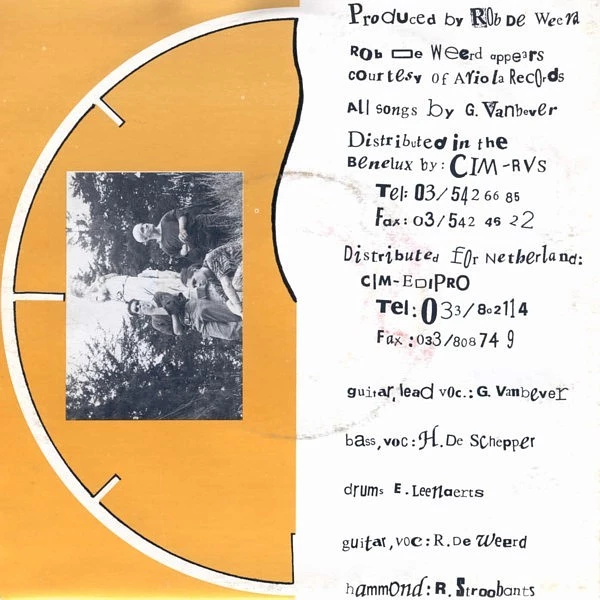 Produced by Rob De Weerd
Rob De Weerd appears
courtesy of Ariola Records
All songs by G. Vanbever
Distributed in the
Benelux by: CIM-RVS
Tel: 03/542 66 85
Fax: 03/542 46 22
Distributed for Netherland:
CIM-EDIPRO
Tel: 033/802114
Fax: 033/808749
guitar, lead voc.: G. Vanbever
bass, voc: H. De Schepper
drums E. Leenaerts
guitar, voc: R. De Weerd
hammond: R. Stroobants